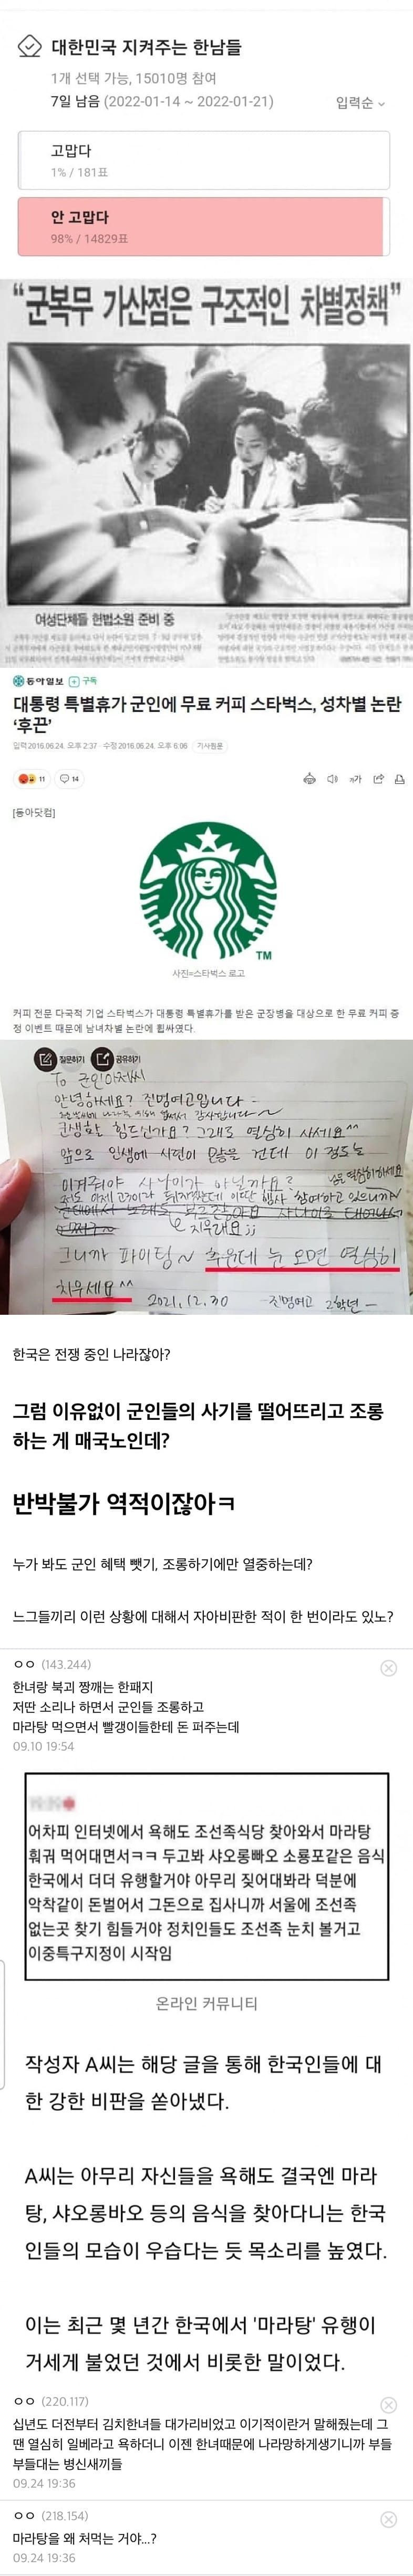 대한민국 지켜주는 한남들
1개 선택 가능, 15010명 참여
7일 남음 (2022-01-14 ~ 2022-01-21)
입력순
고맙다
1% / 181표
안 고맙다
98% / 14829표
“군복무 가산점은 구조적인 차별정책”
여성단체들 헌법소원 준비 중
동아일보
구독
대통령 특별휴가 군인에 무료 커피 스타벅스, 성차별 논란
‘후끈’
입력 2016.06.24. 오후 2:37 · 수정 2016.06.24. 오후 6:06
기사원문
11
14
가
[동아닷컴]
TM
사진=스타벅스 로고
커피 전문 다국적 기업 스타벅스가 대통령 특별휴가를 받은 군장병을 대상으로 한 무료 커피 증
정 이벤트 때문에 남녀차별 논란에 휩싸였다.
질문하기
공유하기
To 군인아저씨
안녕하세요? 진명여고입니다
군생활 힘드신가요? 그래도 열심히 사세요^^
앞으로 인생에 시련이 많을 건데 이 정도는
이겨줘야 사나이가 아닐까요?
저도 이제 고3이라 뒤지겠는데 이딴 행사 참여하고 있으니까
눈 열심히하세요
지우래요;;
그니까 파이팅~ 추운데 눈 오면 열심히
치우세요^^
2021.12.30
-진명여고 2학년-
한국은 전쟁 중인 나라잖아?
그럼 이유없이 군인들의 사기를 떨어뜨리고 조롱
하는 게 매국노인데?
반박불가 역적이잖아ㅋ
누가 봐도 군인 혜택 뺏기, 조롱하기에만 열중하는데?
느그들끼리 이런 상황에 대해서 자아비판한 적이 한 번이라도 있노?
ㅇㅇ (143.244)
한녀랑 북괴 짱깨는 한패지
저딴 소리나 하면서 군인들 조롱하고
마라탕 먹으면서 빨갱이들한테 돈 퍼주는데
09.10 19:54
어차피 인터넷에서 욕해도 조선족식당 찾아와서 마라탕
훠궈 먹어대면서ㅋㅋ 두고봐 샤오롱빠오 소룡포같은 음식
한국에서 더더 유행할거야 아무리 짖어대봐라 덕분에
악착같이 돈벌어서 그돈으로 집사니까 서울에 조선족
없는곳 찾기 힘들거야 정치인들도 조선족 눈치 볼거고
이중특구지정이 시작임
온라인 커뮤니티
작성자 A씨는 해당 글을 통해 한국인들에 대
한 강한 비판을 쏟아냈다.
A씨는 아무리 자신들을 욕해도 결국엔 마라
탕, 샤오롱바오 등의 음식을 찾아다니는 한국
인들의 모습이 우습다는 듯 목소리를 높였다.
이는 최근 몇 년간 한국에서 '마라탕' 유행이
거세게 불었던 것에서 비롯한 말이었다.
ㅇㅇ (220.117)
십년도 더전부터 김치한녀들 대가리비었고 이기적이란거 말해줬는데 그
땐 열심히 일베라고 욕하더니 이젠 한녀때문에 나라망하게생기니까 부들
부들대는 병신새끼들
09.24 19:36
ㅇㅇ (218.154)
마라탕을 왜 처먹는 거야...?
09.24 19:36